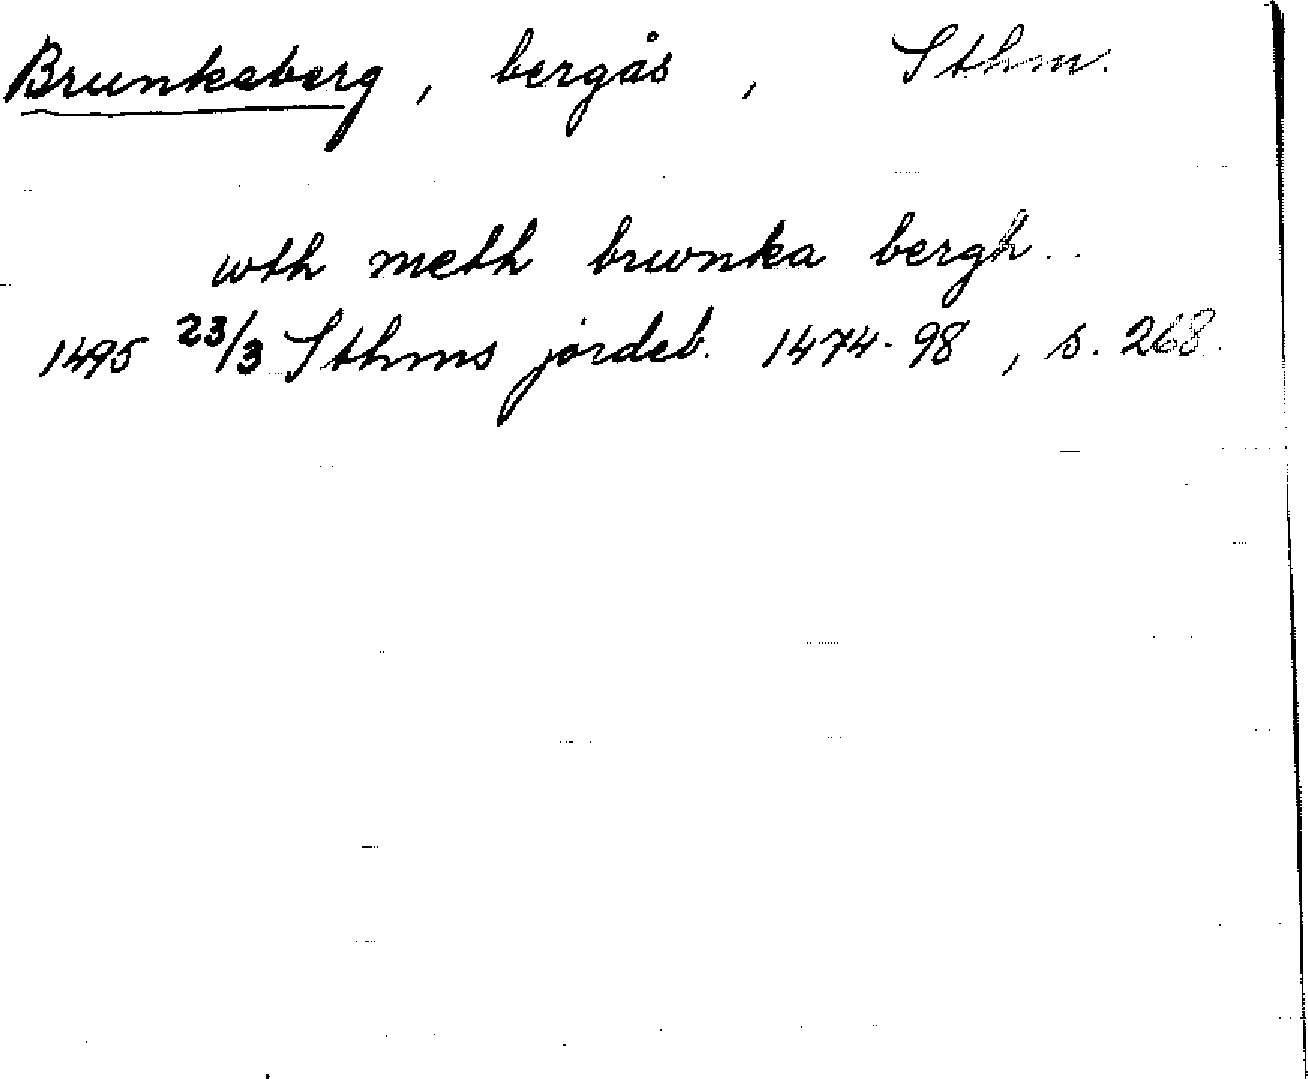 Brunkeberg, bergås, Sthm.
wth meth brwnka bergh..
1495 23/3 Sthms jordeb. 1474-98, s. 268.